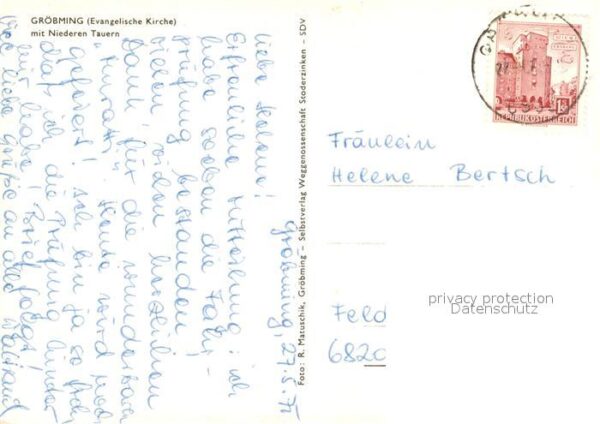 GRÖBMING (Evangelische Kirche)
mit Niederen Tauern
Gröbming, 27.5.75
Liebe Helene!
Erfreuliche Mitteilung: ich
habe soeben die Fahr-
prüfung bestanden.
Vielen, vielen herzlichen
Dank für die wunderbare
gefeiert! Ich bin ja so froh,
daß ich die Prüfung hinter
mir habe. Brief folgt!
Viele liebe Grüße an alle Waltraud
Foto: R. Matuschik, Gröbming – Selbstverlag Weggenossenschaft Stoderzinken – SDV
REPUBLIK ÖSTERREICH
Fräulein
Helene Bertsch
Feld
6820
privacy protection
Datenschutz